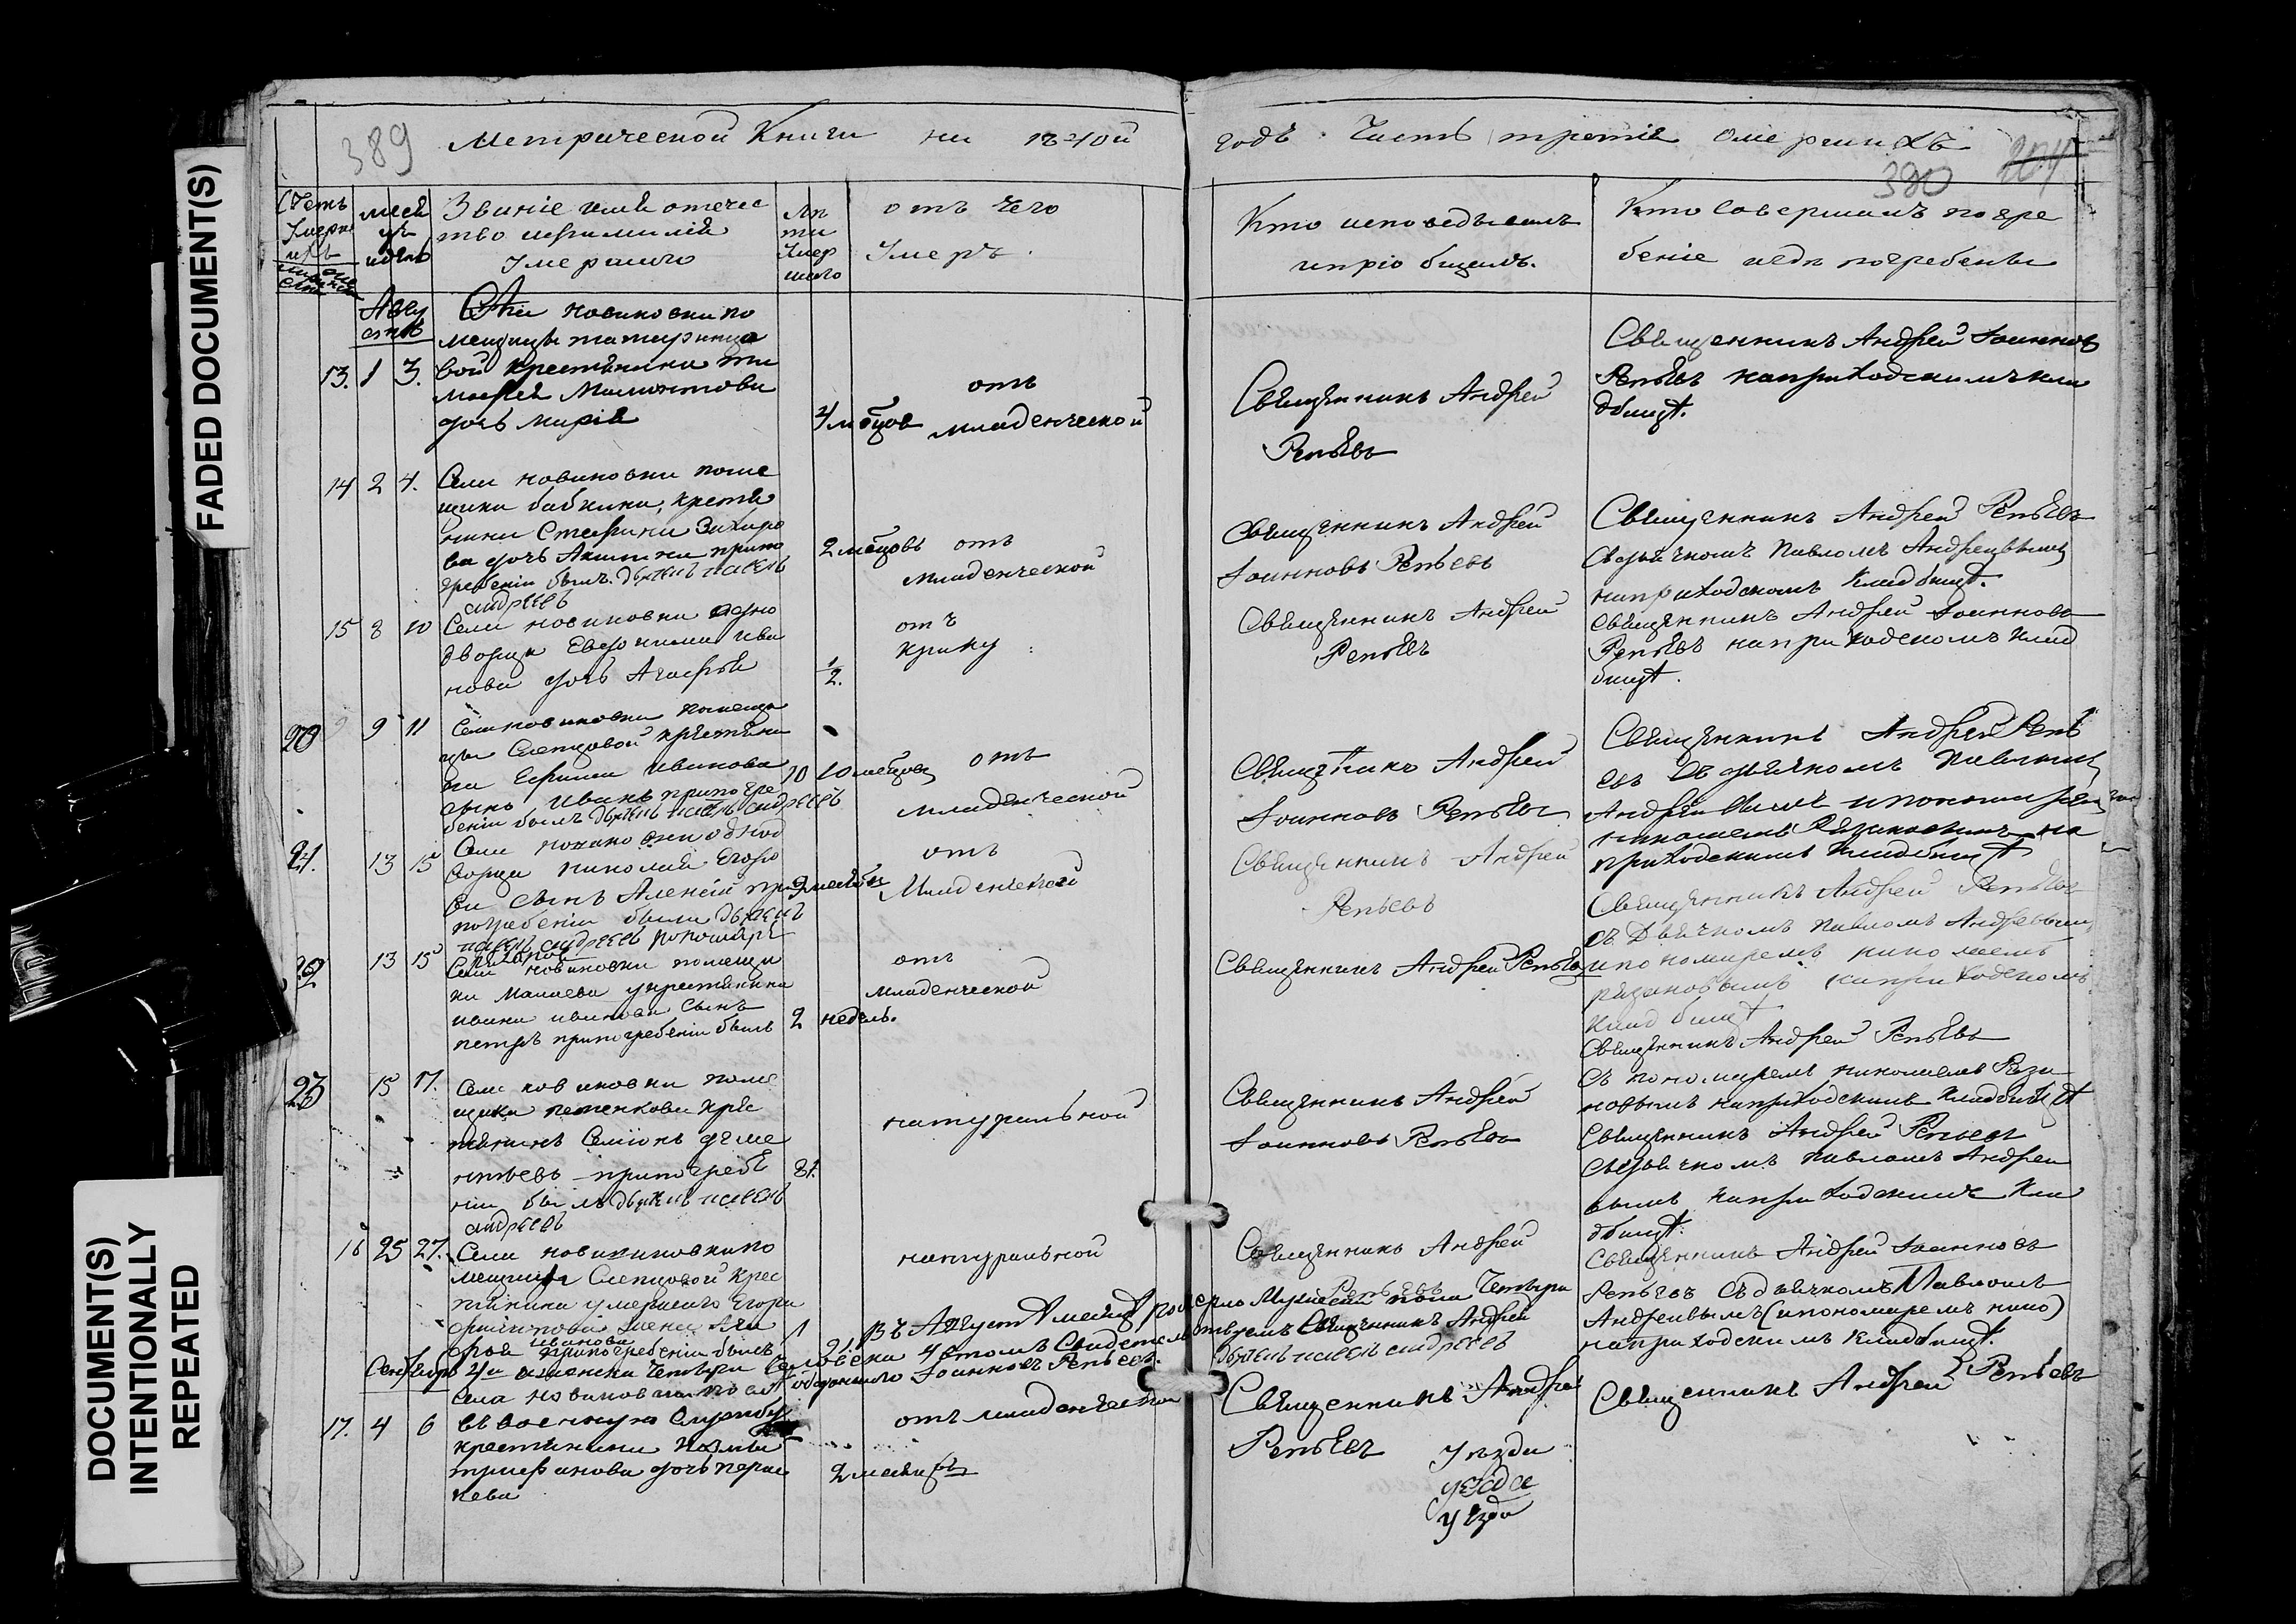 FADED DOCUMENT(S)
DOCUMENT(S)
INTENTIONALLY
REPEATED
389
Метрической Книги на 1840й
годъ Часть третія Омершихъ
390
204
Счетъ
Умерш
ихъ
месе
цъ
идень
Званіе имя отечес
тво ифамилія
Умершаго
Лѣ
та
Умер
шаго
отъ Чего
Умеръ.
Кто исповедывалъ
ипріобщалъ.
Кто Совершалъ погре
беніе игдѣ погребены
Авгу
стъ
Села новиковки по
мещицы
13. 1 3.
вой крестьянина Ти
мофея Мамонтова
дочь марія
4 мѣцов
отъ
младенческой
Священникъ Андрей
Репьевъ
Священникъ Андрей Іоанновъ
Репьевъ наприходскомъ кла
дбищѣ.
14 2 4.
Села новиковки поме
щика бабкина, кресть
нина Стефана Захаро
ва дочь Акилина припо
гребеніи былъ дьячекъ павелъ
андреевъ
2 мѣцовъ отъ
младенческой
Священникъ Андрей
Іоанновъ Репьевъ
Священникъ Андрей Репьевъ
Сдьячкомъ Павломъ Андреевымъ
наприходскомъ Кладбищѣ.
15 8 10
Села новиковки одно
дворца Ива
нова дочь Агафья
1/2.
отъ
крику
Священникъ Андрей
Репьевъ
Священникъ Андрей Іоанновъ
Репьевъ наприходскомъ клад
бищѣ.
20 9 11
Села новиковки помещи
цы Слепцовой крестьяни
на Ефима Иванова
сынъ Иванъ припогре
беніи былъ дьячекъ павелъ андреевъ
10 10 мецовъ отъ
младенческой
Священникъ Андрей
Іоанновъ Репьевъ
Священникъ Андрей Репь
евъ Съ дьячкомъ Павломъ
Андреевымъ ипономаремъ
николаемъ Рязановымъ на
приходскомъ Кладбищѣ
21. 13 15
Села новиковки однод
ворца николая Егоро
ва Сынъ Алексій при
погребеніи были дьячекъ
павелъ андреевъ
отъ
Младенческой
Священникъ Андрей
Репьевъ
Священникъ Андрей Репьевъ
съ Дьячкомъ Павломъ Андреевымъ
ипономаремъ николаемъ
рязановымъ наприходскомъ
Кладбищѣ
22 13 15
Села новиковки помещи
ка Малаева укрестьянина
ивана иванова Сынъ
петръ припогребеніи былъ
2 недель.
отъ
младенческой
Священникъ Андрей Репьевъ
Священникъ Андрей Репьевъ
Съ пономаремъ николаемъ Ряза
новымъ наприходскомъ Кладбищѣ
23 15 17.
Села новиковки поме
щика петенкова крес
тьянинъ Симіонъ деме
нтьевъ припогребе
ніи былъ дьячекъ павелъ
андреевъ
81.
натуральной
Священникъ Андрей
Іоанновъ Репьевъ
Священникъ Андрей Репьевъ
Сдьячкомъ Павломъ Андрее
вымъ наприходскомъ Кла
дбищѣ.
16 25 27.
Села новиковки по
мещицы Слепцовой Крес
тьянина умершаго Егора
жена Ага
фья иванова припогребеніи былъ
дьячекъ павелъ андреевъ
91.
натуральной
Священникъ Андрей
Репьевъ
Священникъ Андрей Іоанновъ
Репьевъ Съдьячкомъ Павломъ
Андреевымъ (ипономаремъ нико)
наприходскомъ кладбищѣ.
Въ Августѣ месяцѣ померло Мужеска пола Четыри
а женска Четыри Человека Чтомъ Свидетельствуемъ Священникъ Андрей
Іоанновъ Репьевъ.
Сентябрь
17. 4 6
Села новиковки
въ военную Службу
крестьянина Козмы
трифанова дочь параскева
2 месяцовъ
отъ младенческой
Священникъ Андрей
Репьевъ
Священникъ Андрей Репьевъ
Уѣзда
уезда
Уѣзда